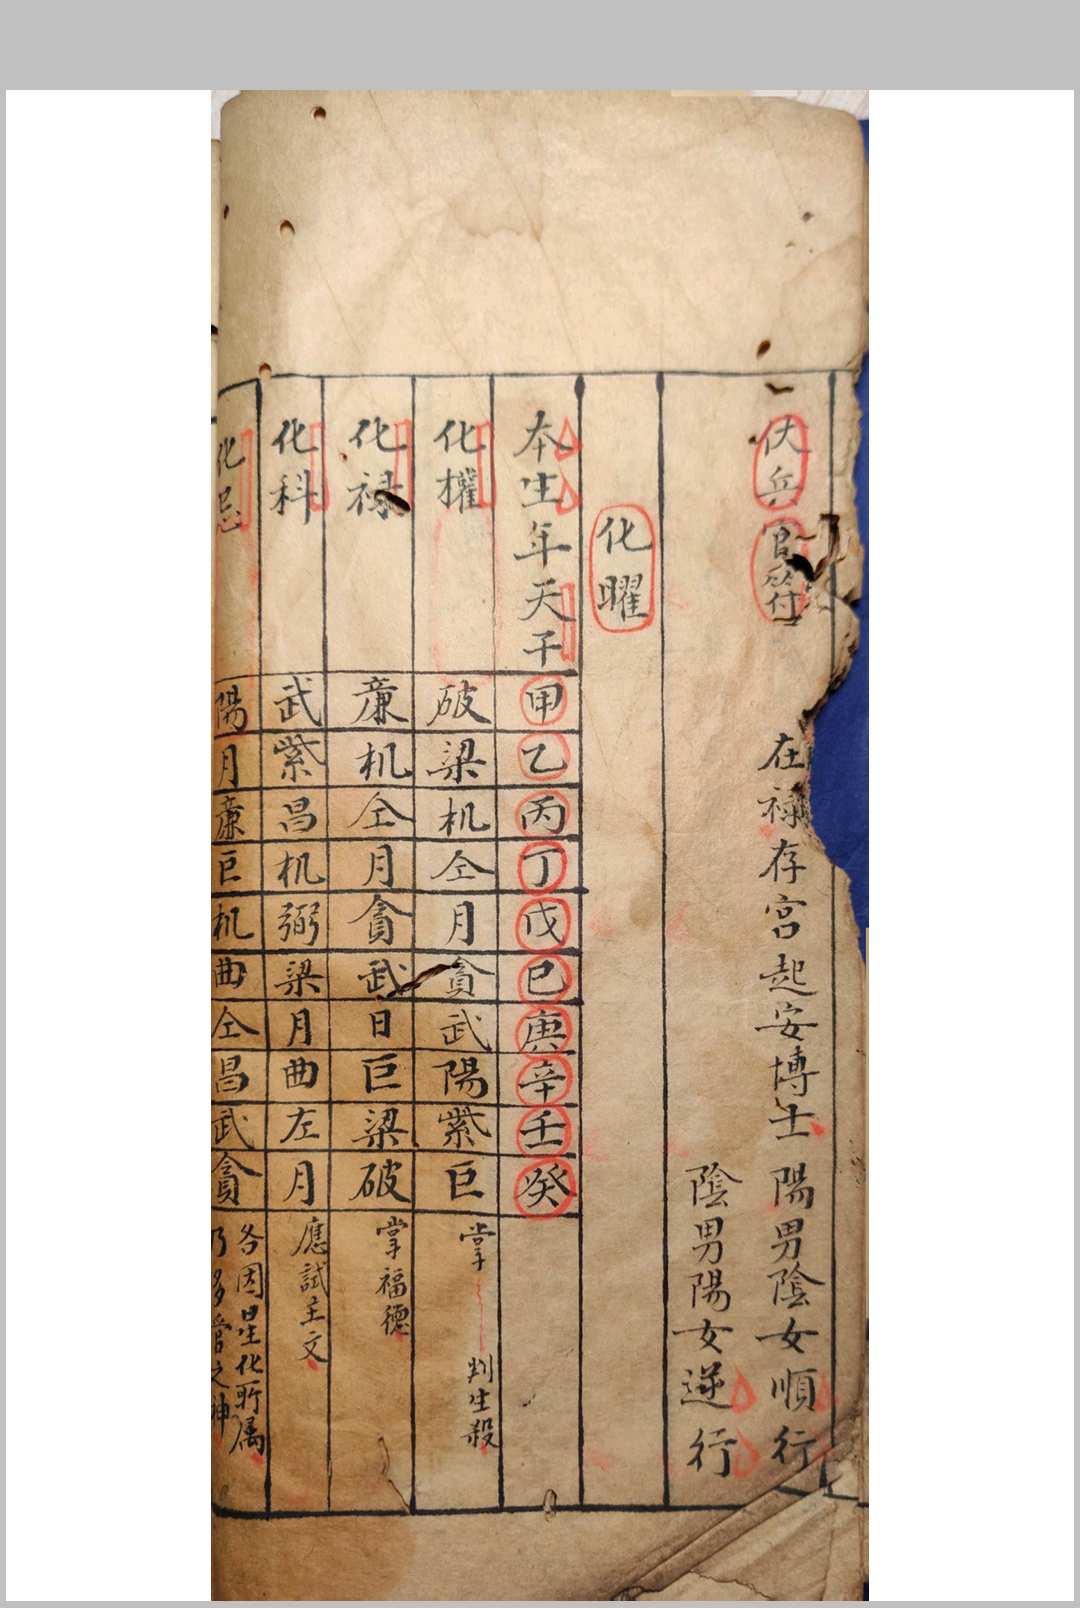 伏兵官符
在禄存宫起安博士陽男陰女順行
陰男陽女逆行
化曜
本生年天干甲乙丙丁戊巳庚辛壬癸
化權破梁机仝月貪武陽紫巨掌判生殺
化禄廉机仝月貪武日巨梁破掌福德
化科武紫昌机弼梁月曲左月應試主文
化忌陽月廉巨机曲仝昌武貪各因星化所属
乃多管之神